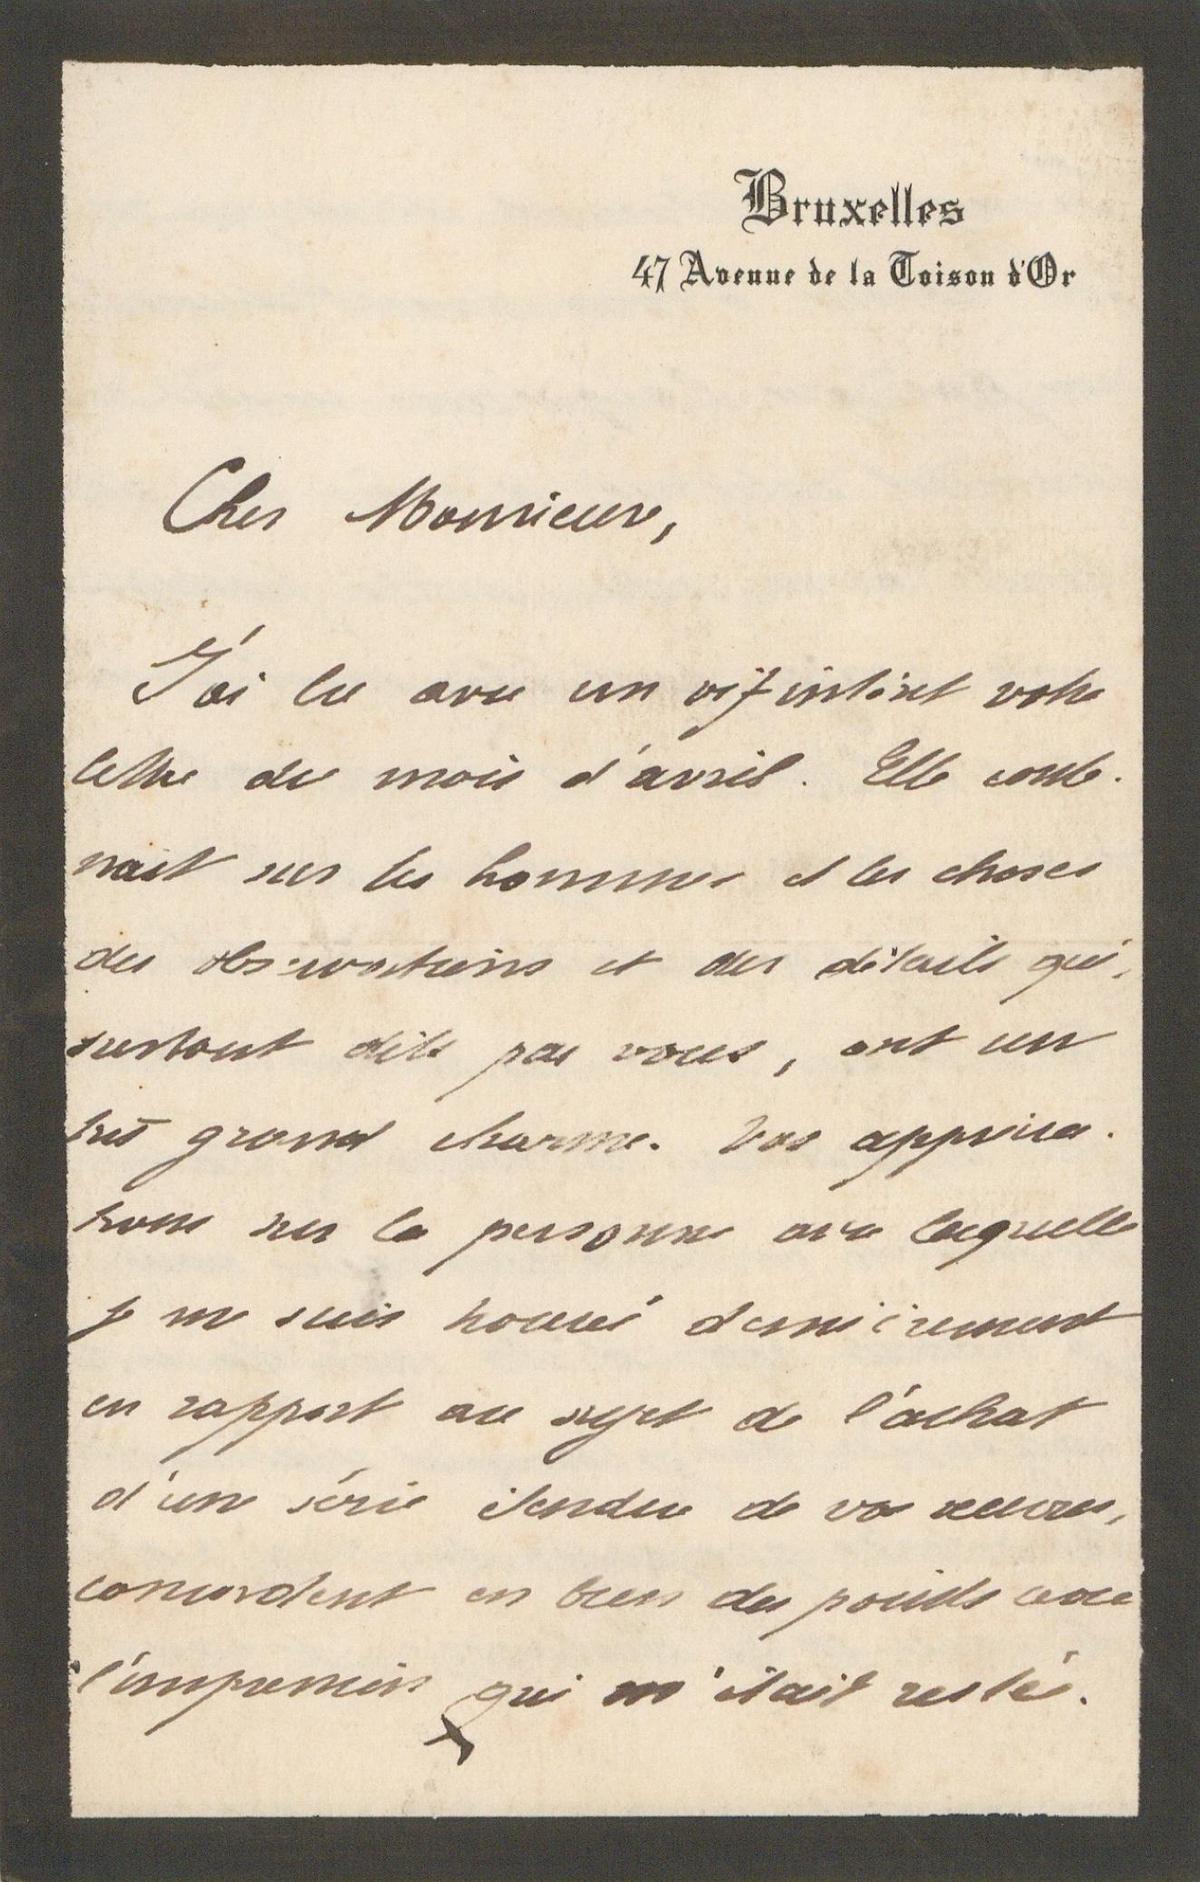 Bruxelles
47 Avenue de la Toison d'Or
Cher Monsieur,
J'ai lu avec un vif intéret votre
lettre du mois d'avril. Elle conte-
nait sur les hommes et les choses
des observations et des détails qui,
surtout dits par vous, ont un
très grand charme. Vos apprécia-
tions sur la personne avec laquelle
je me suis trouvé dernièrement
en rapport au sujet de l'achat
d'une série étendue de vos œuvres,
concordent en bien des points avec
l'impression qui m'était restée.